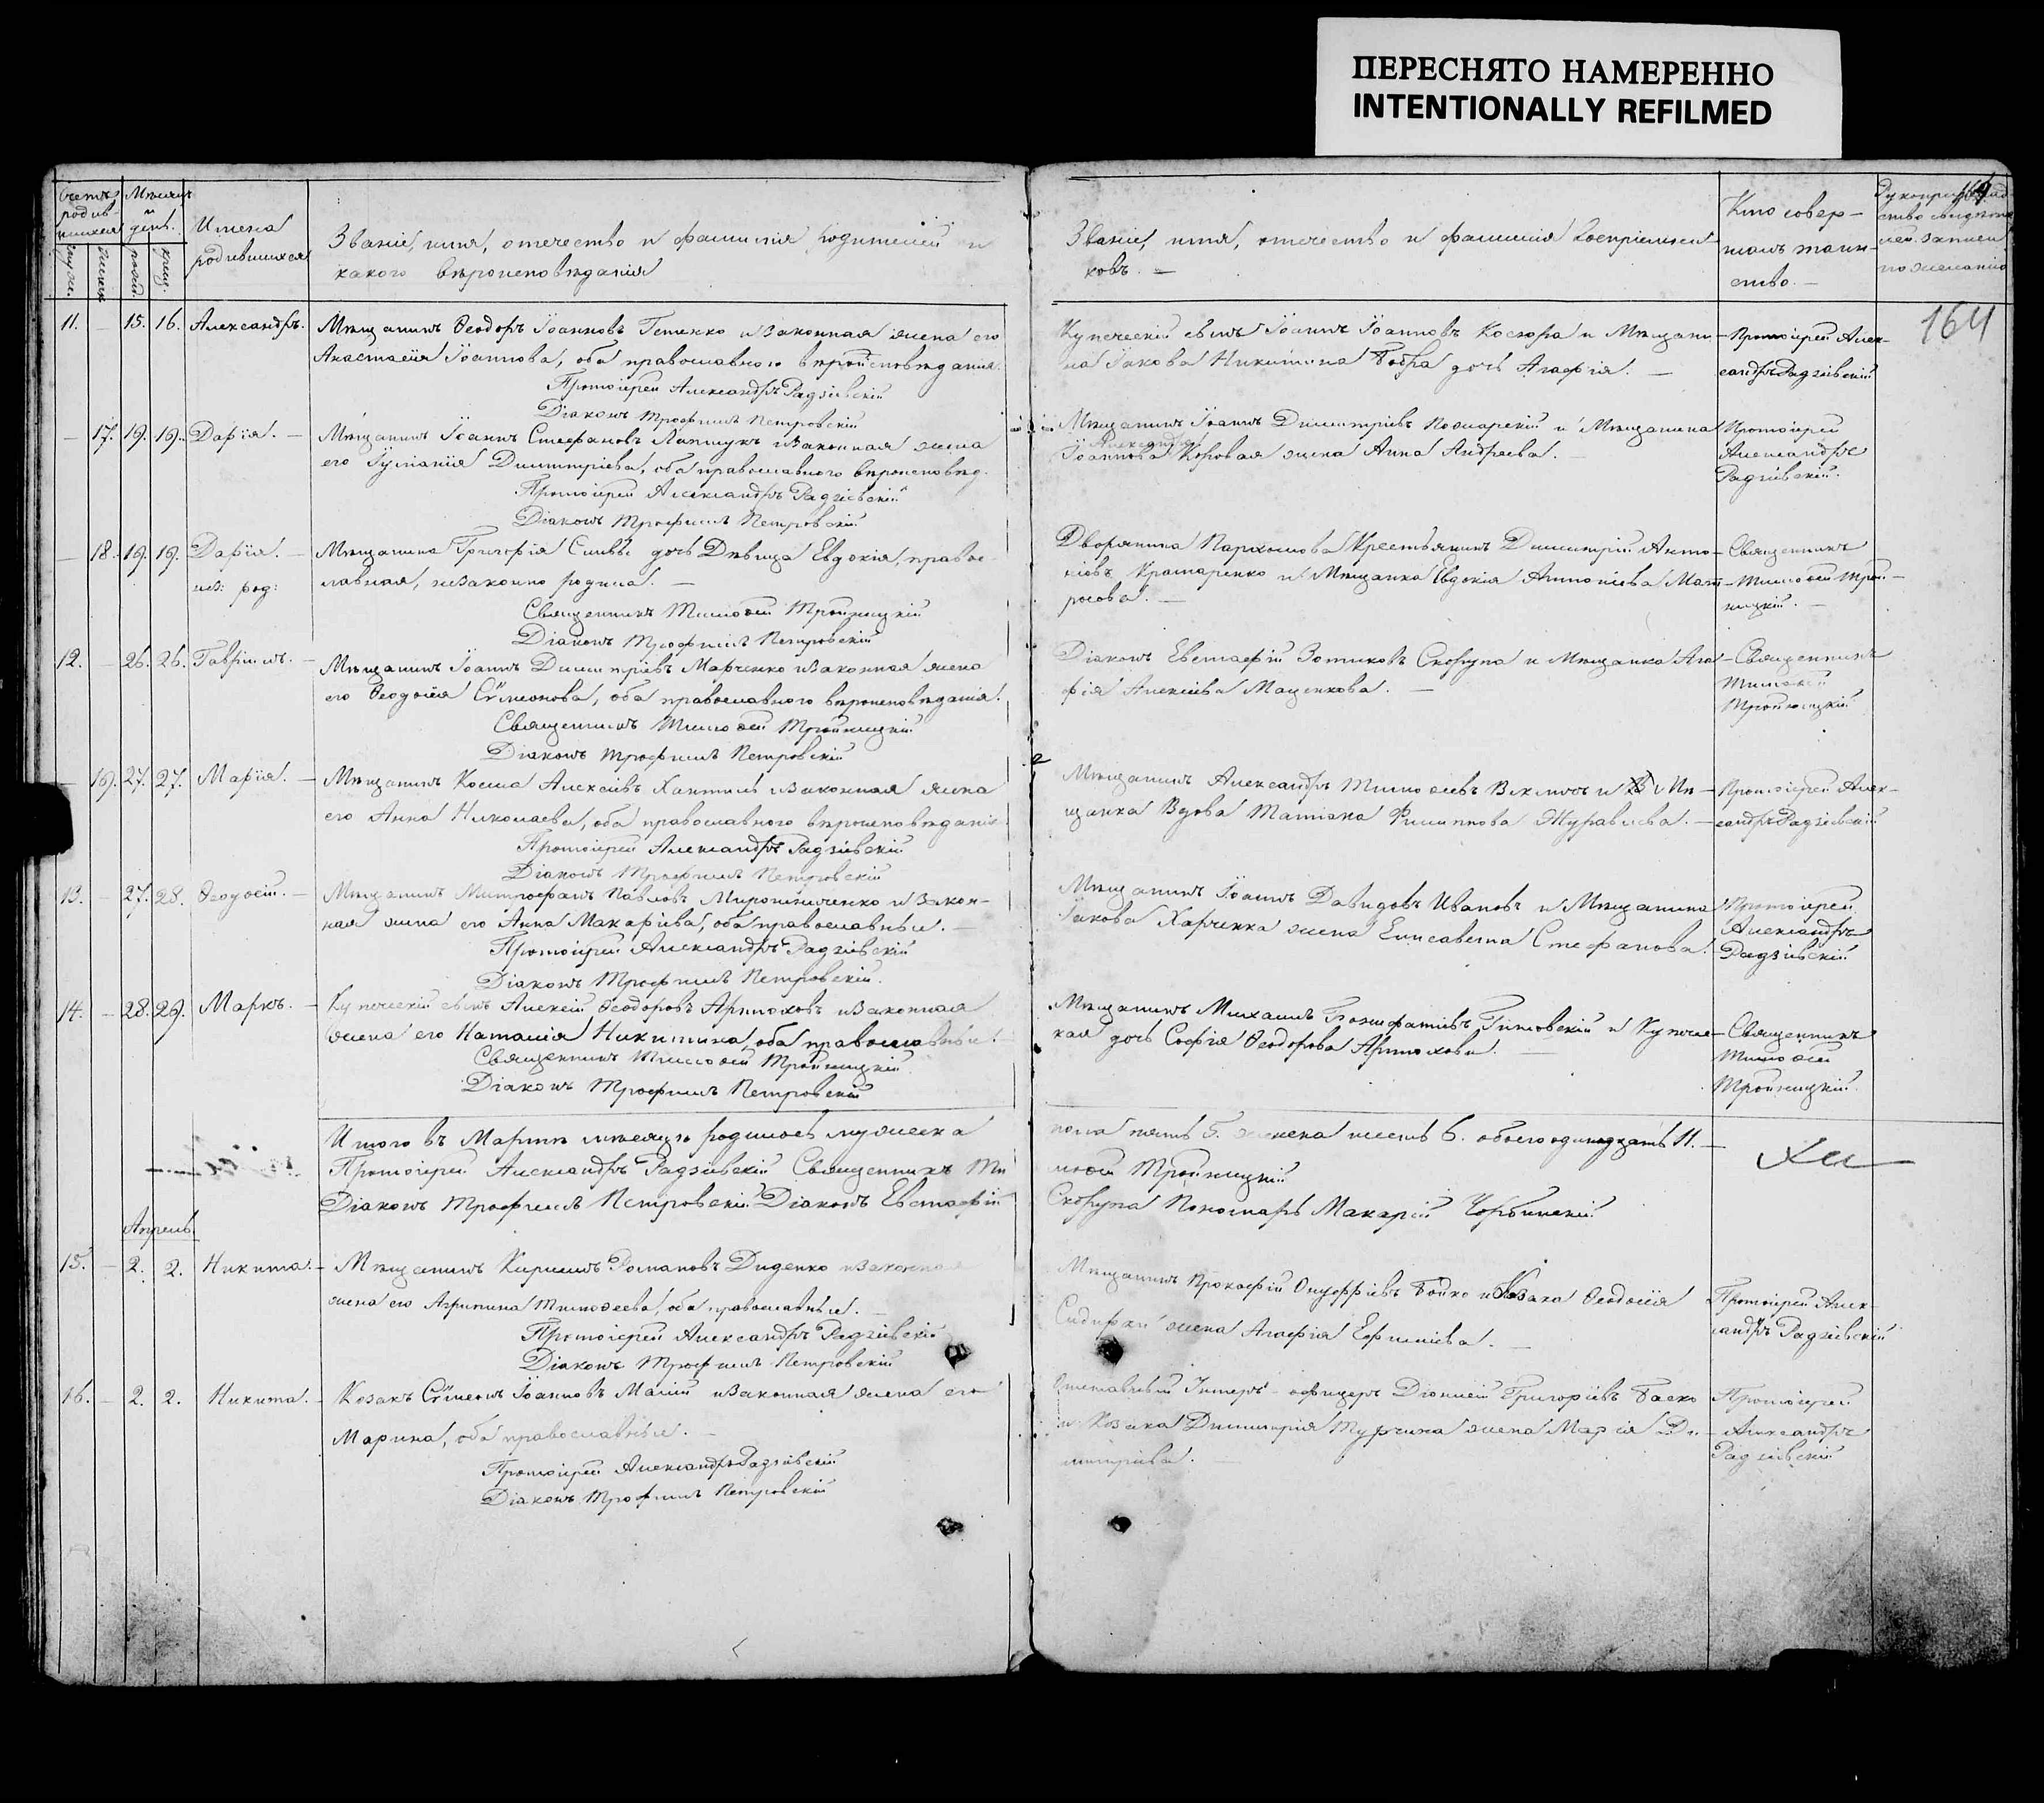 ПЕРЕСНЯТО НАМЕРЕННО
INTENTIONALLY REFILMED
Счетъ родив-шихся
Мѣсяцъ и день.
Имена родившихся
Званіе, имя, отечество и фамилія родителей и
какого вѣроисповѣданія
Званіе, имя, отечество и фамилія воспріемни-
ковъ. —
Кто совер-
шалъ таин-
ство. —
164
11. — 15. 16. Александръ. Мѣщанинъ Ѳеодоръ Іоанновъ и законная жена его
Анастасія Іоаннова, оба православнаго вѣроисповѣданія.
Протоіерей Александръ Радзіевскій
Діаконъ Трофимъ Петровскій
Купеческій сынъ Іоаннъ Іоанновъ Костюра и Мѣщани-
на Іакова Никитина Бобра дочь Агафія. —
Протоіерей Алек-
сандръ Радзіевскій
— 17. 19. 19. Дарія. — Мѣщанинъ Іоаннъ Стефановъ Лапшукъ и законная жена
его Іуліанія Димитріева, оба православнаго вѣроисповѣд.
Протоіерей Александръ Радзіевскій
Діаконъ Трофимъ Петровскій
Мѣщанинъ Іоаннъ Димитріевъ Пожарскій и Мѣщанина
Александра
Іоаннова Коровая жена Анна Андреева. —
Протоіерей
Александръ
Радзіевскій.
— 18. 19. 19. Дарія. — Мѣщанина Григорія дочь Дѣвица Евдокія, правос-
нез: рож: лавная, незаконно родила. —
Священникъ Тимоѳей Тройницкій
Діаконъ Трофимъ Петровскій
Дворянина Пархомова Крестьянинъ Димитрій Анто-
ніевъ Крамаренко и Мѣщанка Евдокія Антоніева Мат-
росова. —
Священникъ
Тимоѳей Трой-
ницкій. —
12. — 26. 26. Гавріилъ. — Мѣщанинъ Іоаннъ Димитріевъ Марченко и законная жена
его Ѳеодосія Сѵмеонова, оба православнаго вѣроисповѣданія.
Священникъ Тимоѳей Тройницкій
Діаконъ Трофимъ Петровскій
Діаконъ Евстафій Зотиковъ Скорупа и Мѣщанка Ага-
фія Алексіева Маценкова. —
Священникъ
Тимоѳей
Тройницкій
— 19. 27. 27. Марія. — Мѣщанинъ Косма Алексіевъ и законная жена
его Анна Николаева, оба православнаго вѣроисповѣданія
Протоіерей Александръ Радзіевскій
Діаконъ Трофимъ Петровскій
Мѣщанинъ Александръ Тимоѳеевъ и Мѣ-
щанка Вдова Татіана Филиппова Журавлева. —
Протоіерей Алек-
сандръ Радзіевскій
13. — 27. 28. Ѳеодосій. — Мѣщанинъ Митрофанъ Павловъ Мирошниченко и закон-
ная жена его Анна Макаріева, оба православные. —
Протоіерей Александръ Радзіевскій
Діаконъ Трофимъ Петровскій.
Мѣщанинъ Іоаннъ Давидовъ Ивановъ и Мѣщанина
Іакова Харченка жена Елисавета Стефанова.
Протоіерей
Александръ
Радзіевскій
14. — 28. 29. Маркъ. — Купеческій сынъ Алексій Ѳеодоровъ Артюховъ и законная
жена его Наталія Никитина, оба православные.
Священникъ Тимоѳей Тройницкій
Діаконъ Трофимъ Петровскій
Мѣщанинъ Михаилъ и Купечес-
кая дочь Софія Ѳеодорова Артюхова. —
Священникъ
Тимоѳей
Тройницкій.
Итого въ Мартѣ мѣсяцѣ родилось мужеска
пола пять 5. женска шесть 6. обоего одинадцать 11. —
Протоіерей Александръ Радзіевскій Священникъ Ти-
моѳей Тройницкій
Діаконъ Трофимъ Петровскій Діаконъ Евстафій
Скорупа Пономарь Макарій
Апрель
15. — 2. 2. Никита. — Мѣщанинъ Кириллъ Романовъ Диденко и законная
жена его Агрипина Тимоѳеева, оба православные. —
Протоіерей Александръ Радзіевскій
Діаконъ Трофимъ Петровскій
Мѣщанинъ Прокофій Онуфріевъ Бойко и Козака Ѳеодосія
жена Агафія Ефиміева. —
Протоіерей Алек-
сандръ Радзіевскій
16. — 2. 2. Никита. — Козакъ Сѵмеонъ Іоанновъ Малій и законная жена его
Марина, оба православные. —
Протоіерей Александръ Радзіевскій
Діаконъ Трофимъ Петровскій
Отставный Унтеръ-офицеръ Діонисій Григоріевъ Баско
и Козака Димитрія Турчина жена Марія Ди-
митріева. —
Протоіерей
Александръ
Радзіевскій